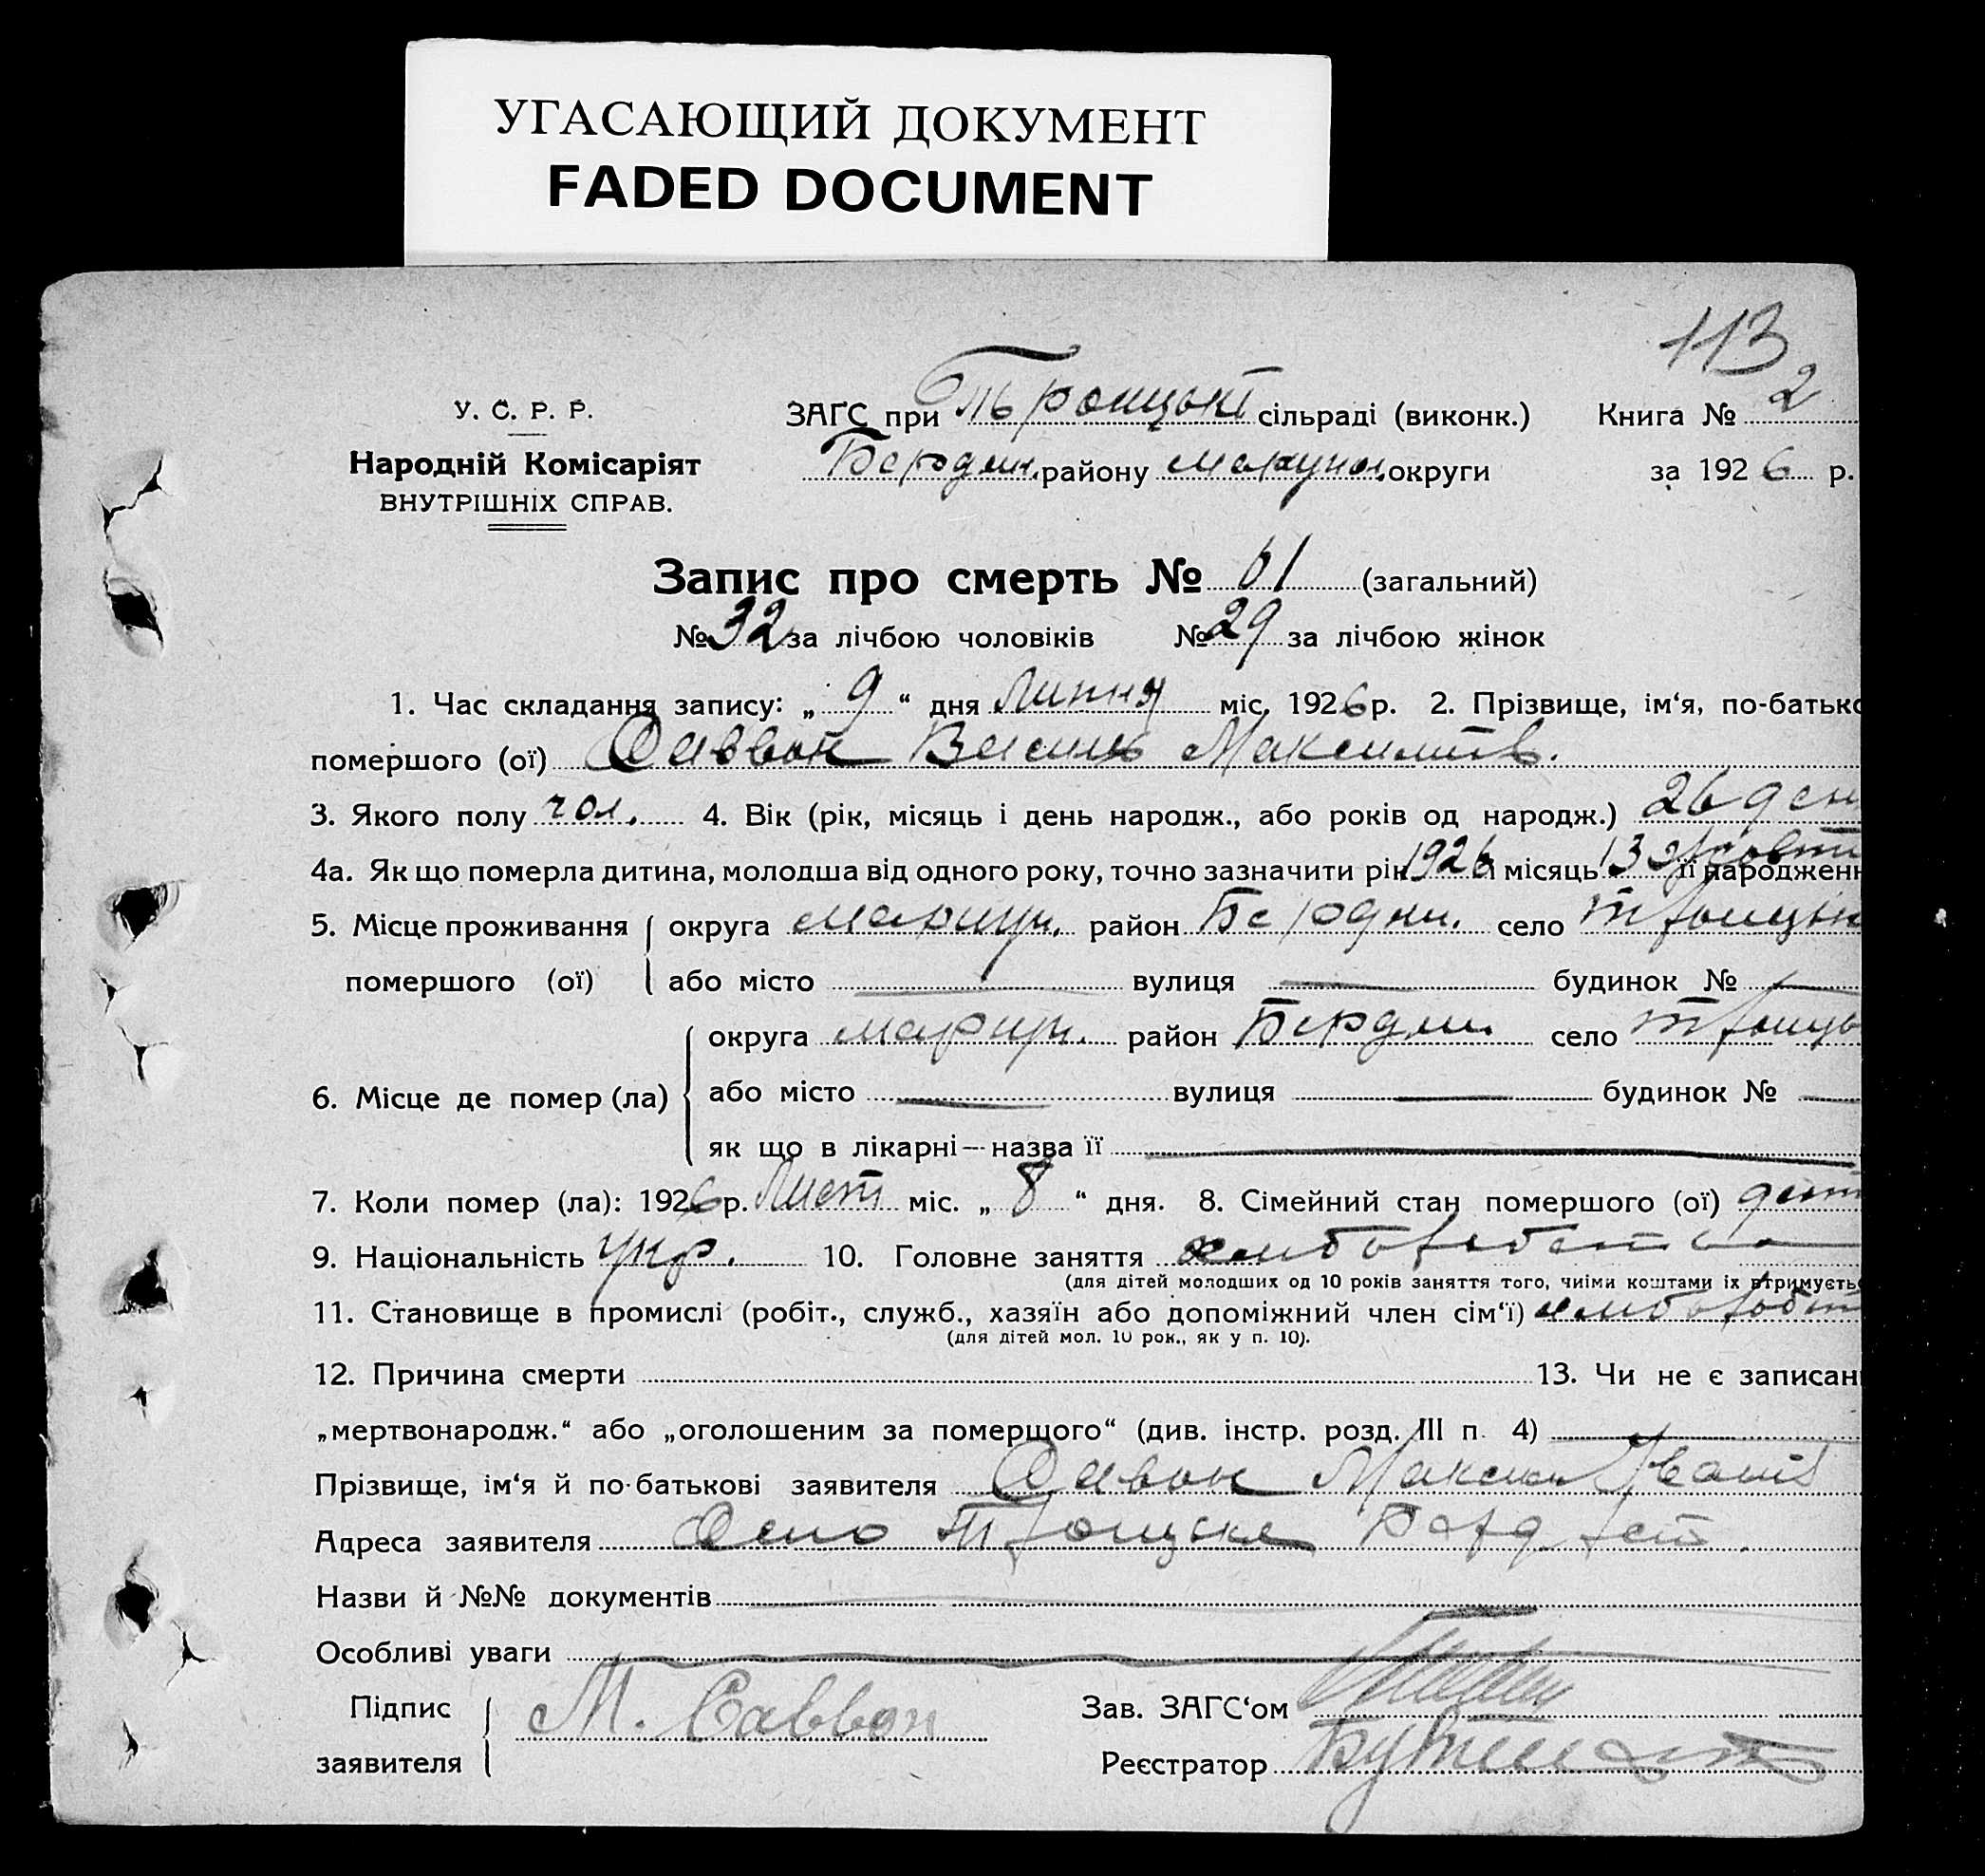 УГАСАЮЩИЙ ДОКУМЕНТ
FADED DOCUMENT
113
У. С. Р. Р.
ЗАГС при сільраді (виконк.) Книга № 2
Народній Комісаріят
Бердян. району округи за 1926 р.
ВНУТРІШНІХ СПРАВ.
Запис про смерть № 61 (загальний)
№ 32 за лічбою чоловіків № 29 за лічбою жінок
1. Час складання запису: „ 9 “ дня міс. 1926 р. 2. Прізвище, ім‘я, по-батько
помершого (ої) Саввон Василь Максимів.
3. Якого полу чол. 4. Вік (рік, місяць і день народж., або років од народж.) 26 ден
4а. Як що померла дитина, молодша від одного року, точно зазначити рік 1926 і місяць 13 Жовтн її народженн
5. Місце проживання округа мариуп. район Бердян. село Троицьк
помершого (ої) або місто вулиця будинок №
округа мариуп. район Бердян село Троиць
6. Місце де помер (ла) або місто вулиця будинок №
як що в лікарні — назва її
7. Коли помер (ла): 1926 р. Лист міс. „ 8 “ дня. 8. Сімейний стан помершого (ої) дит
9. Національність укр. 10. Головне заняття
(для дітей молодших од 10 років заняття того, чиїми коштами їх втримуєтьс
11. Становище в промислі (робіт., служб., хазяїн або допоміжний член сім‘ї)
(для дітей мол. 10 рок., як у п. 10).
12. Причина смерти 13. Чи не є записан
„мертвонародж.“ або „оголошеним за померщого“ (див. інстр. розд. III п. 4)
Прізвище, ім‘я й по-батькові заявителя Савон Максим Іванів
Адреса заявителя Село Троицке
Назви й №№ документів
Особливі уваги
Підпис М. Саввон Зав. ЗАГС‘ом
заявителя Реєстратор